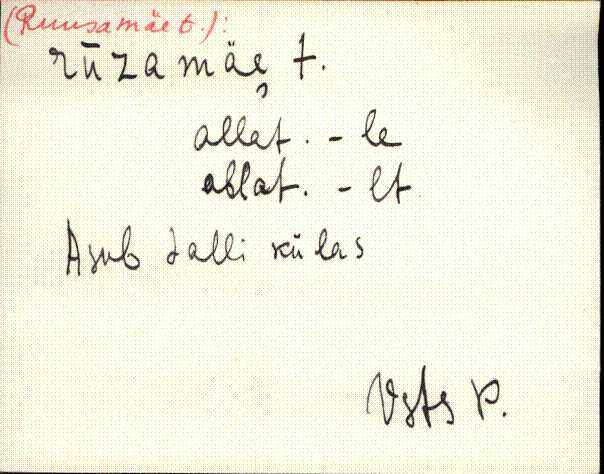 (Ruusamäe t.):
rūzamäe̦ t.
allat. - le
ablat. - lt
Asub Jalli külas
Vsts P.